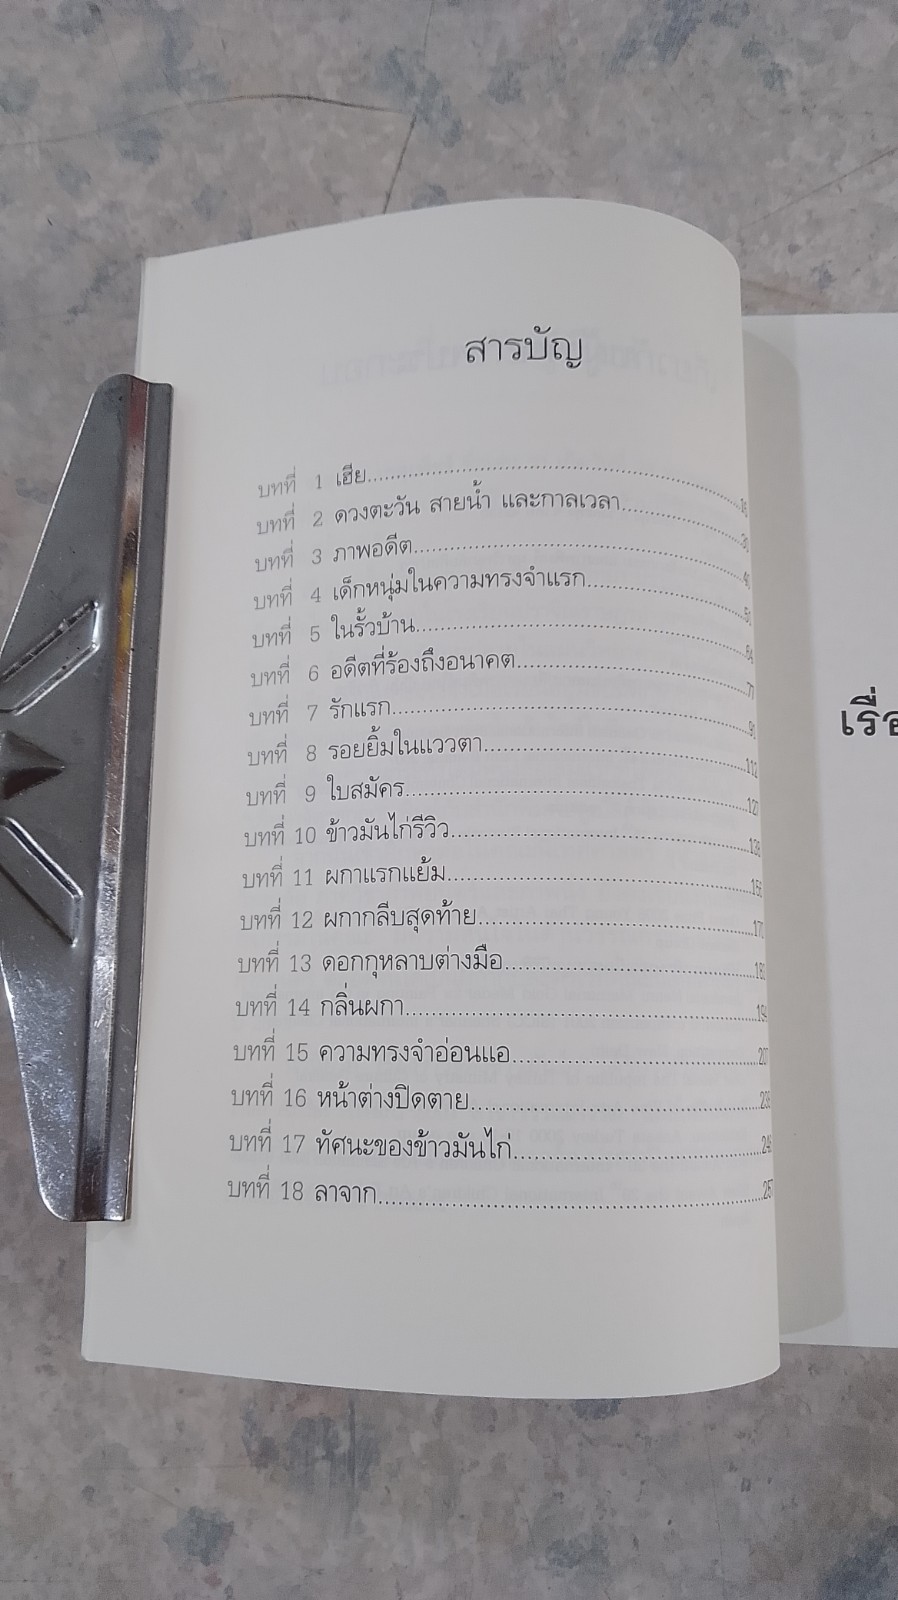 สารบัญ
บทที่ 1 เฮีย
บทที่ 2 ดวงตะวัน สายน้ำ และกาลเวลา
บทที่ 3 ภาพอดีต
บทที่ 4 เด็กหนุ่มในความทรงจำแรก
บทที่ 5 ในรั้วบ้าน
บทที่ 6 อดีตที่ร้องถึงอนาคต
บทที่ 7 รักแรก
บทที่ 8 รอยยิ้มในแววตา....112
บทที่ 9 ใบสมัคร
บทที่ 10 ข้าวมันไก่รีวิว
บทที่ 11 ผกาแรกแย้ม
บทที่ 12 ผกากลีบสุดท้าย
บทที่ 13 ดอกกุหลาบต่างมือ
บทที่ 14 กลิ่นผกา
บทที่ 15 ความทรงจำอ่อนแอ....207
บทที่ 16 หน้าต่างปิดตาย
บทที่ 17 ทัศนะของข้าวมันไก่
บทที่ 18 ลาจาก....257